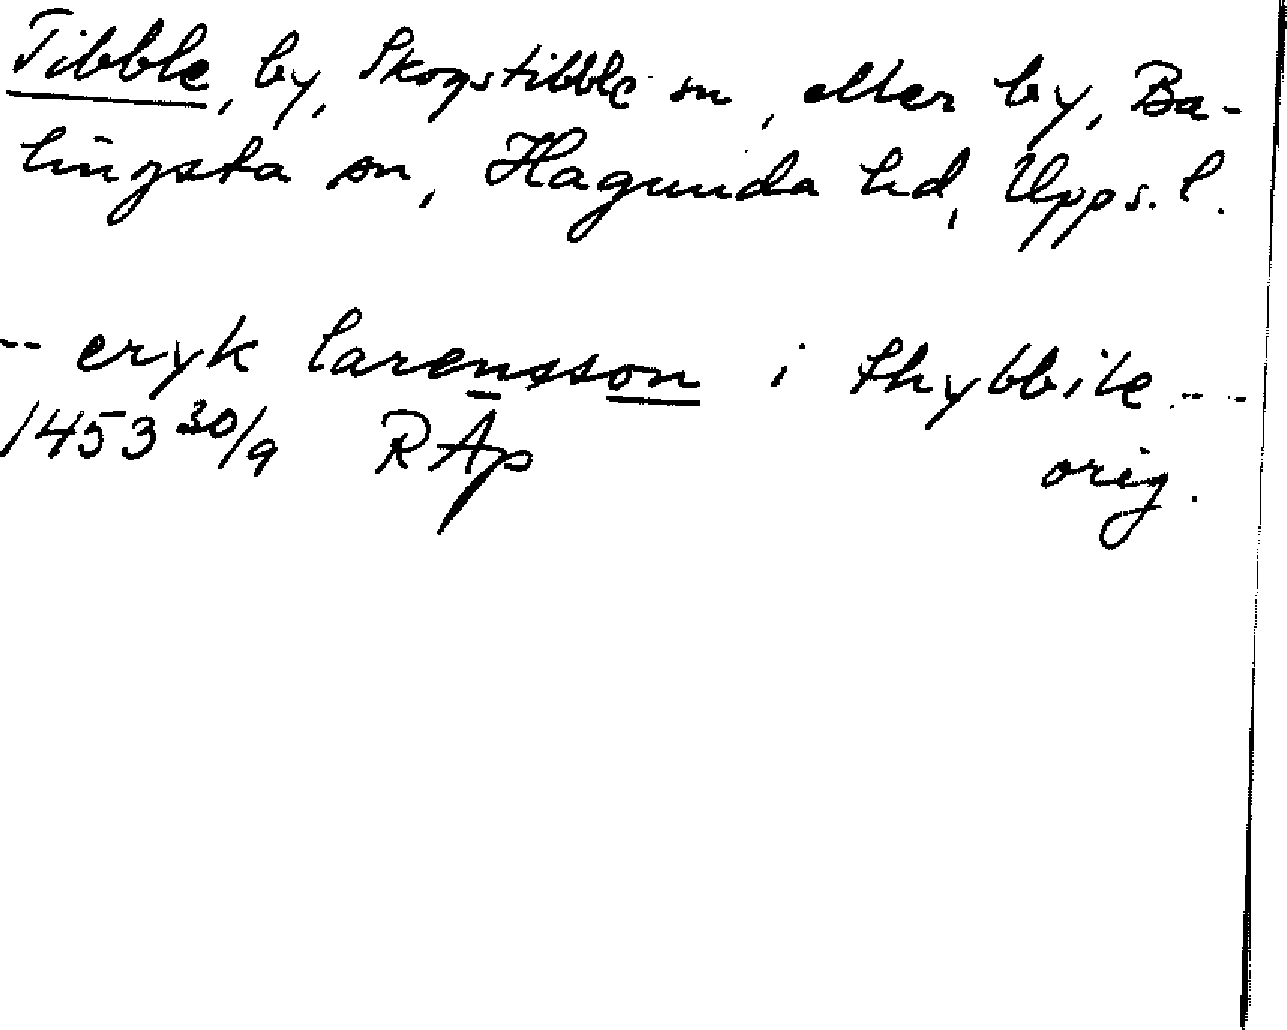 Tibble, by, Skogstibble sn, eller by, Ba-
lingsta sn, Hagunda hd, Upps. l.
-- eryk larensson i thybbile ---
1453 30/9 RAp orig.